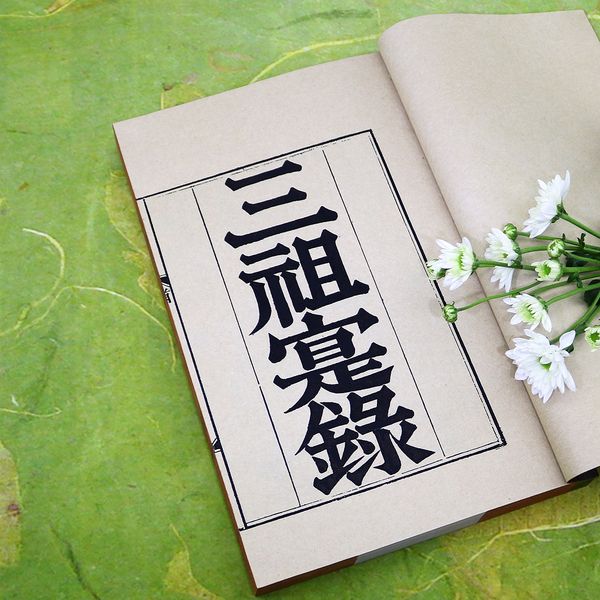 三祖寔錄